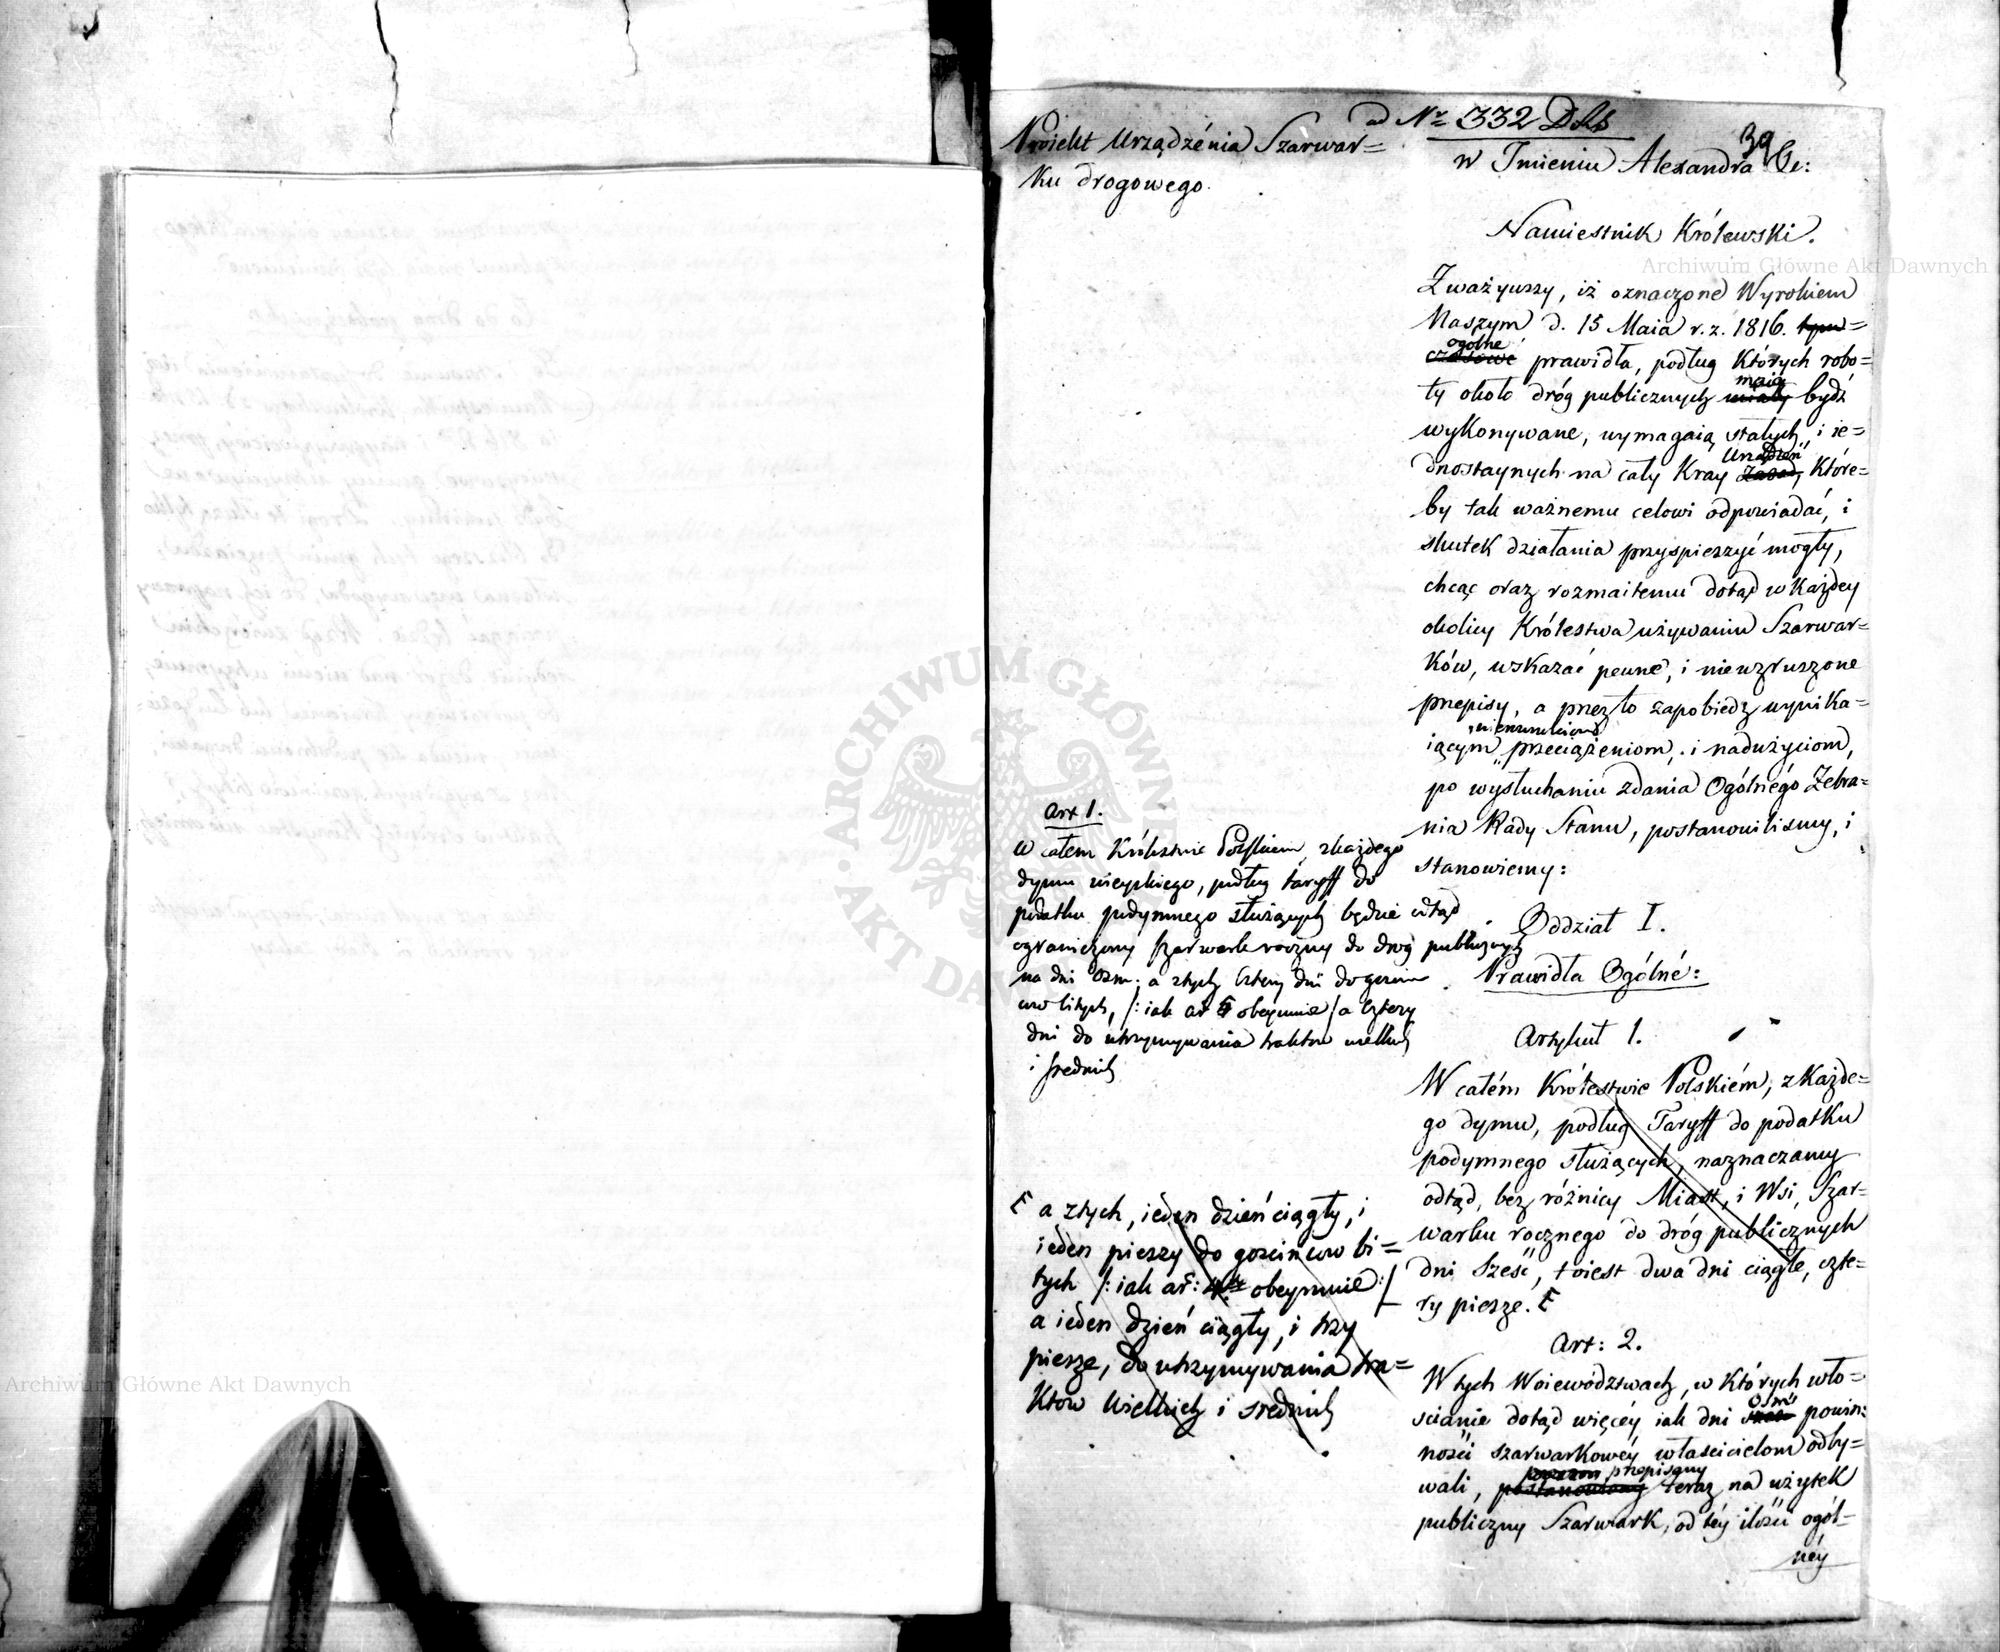 ad Nr 332 D.
39
Projekt Urządzenia Szarwar=
ku drogowego.
w Imieniu Alexandra &c:
Namiestnik Królewski.
Zważywszy, iż oznaczone Wyrokiem
Naszym d. 15 Maia r. z. 1816. tym=
czasowe ogólne prawidła, podług których robo=
ty około dróg publicznych miały maią bydź
wykonywane, wymagaią stałych, i ie=
dnostaynych na cały Kray Zasad, Urządzeń które=
by tak ważnemu celowi odpowiadać, i
skutek działania przyspieszyć mogły,
chcąc oraz rozmaitemu dotąd w każdey
okolicy Królestwa używaniu Szarwar=
ków, wskazać pewne, i niewzruszone
przepisy, a przez to zapobiedz wynika=
iącym przeciążeniom, i nadużyciom,
po wysłuchaniu zdania Ogólnégo Zebra=
nia Rady Stanu, postanowilismy, i
stanowiemy:
Oddział I.
Prawidła Ogólné:
Artykuł 1.
W całém Królestwie Polskiém, z każde=
go dymu, podług Taryff do podatku
podymnego służących, naznaczamy
odtąd, bez różnicy Miast, i Wsi, Szar=
warku rocznego do dróg publicznych
dni Sześć, toiest dwa dni ciągłe, czte=
ry piesze. F
Art: 2.
W tych Woiewództwach, w których wło=
scianie dotąd więcéy iak dni sześć Ośm powin:
ności szarwarkowéy właścicielom odby=
wali, postanowiony przepisany teraz na użytek
publiczny Szarwark, od téy ilości ogól=
néy
Art 1.
W całem Królestwie Polskiem, z każdego
dymu wieyskiego, podług taryff do
podatku podymnego służących będzie odtąd
ograniczony szarwark roczny do dróg publicznych
na dni Ośm; a z tych cztery dni do gościń
ców bitych, /: iak ar obeymie / a cztery
dni do utrzymywania traktów wielkich
i srednich
F a z tych, ieden dzień ciągły, i
ieden pieszy do gościńców bi=
tych /: iak ar: obeymie :/
a ieden dzień ciągły, i trzy
piesze, do utrzymywania tra=
któw Wielkich i srednich
ARCHIWUM GŁÓWNE AKT DAWNYCH
Archiwum Główne Akt Dawnych
Archiwum Główne Akt Dawnych